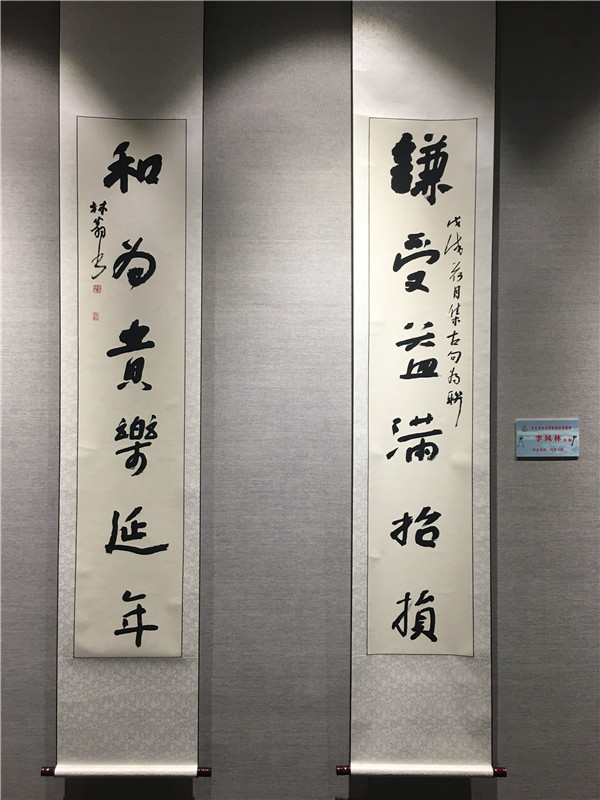 謙受益滿招損
戊戌荷月集古句為聯
和為貴樂延年
林翁书
李凤林